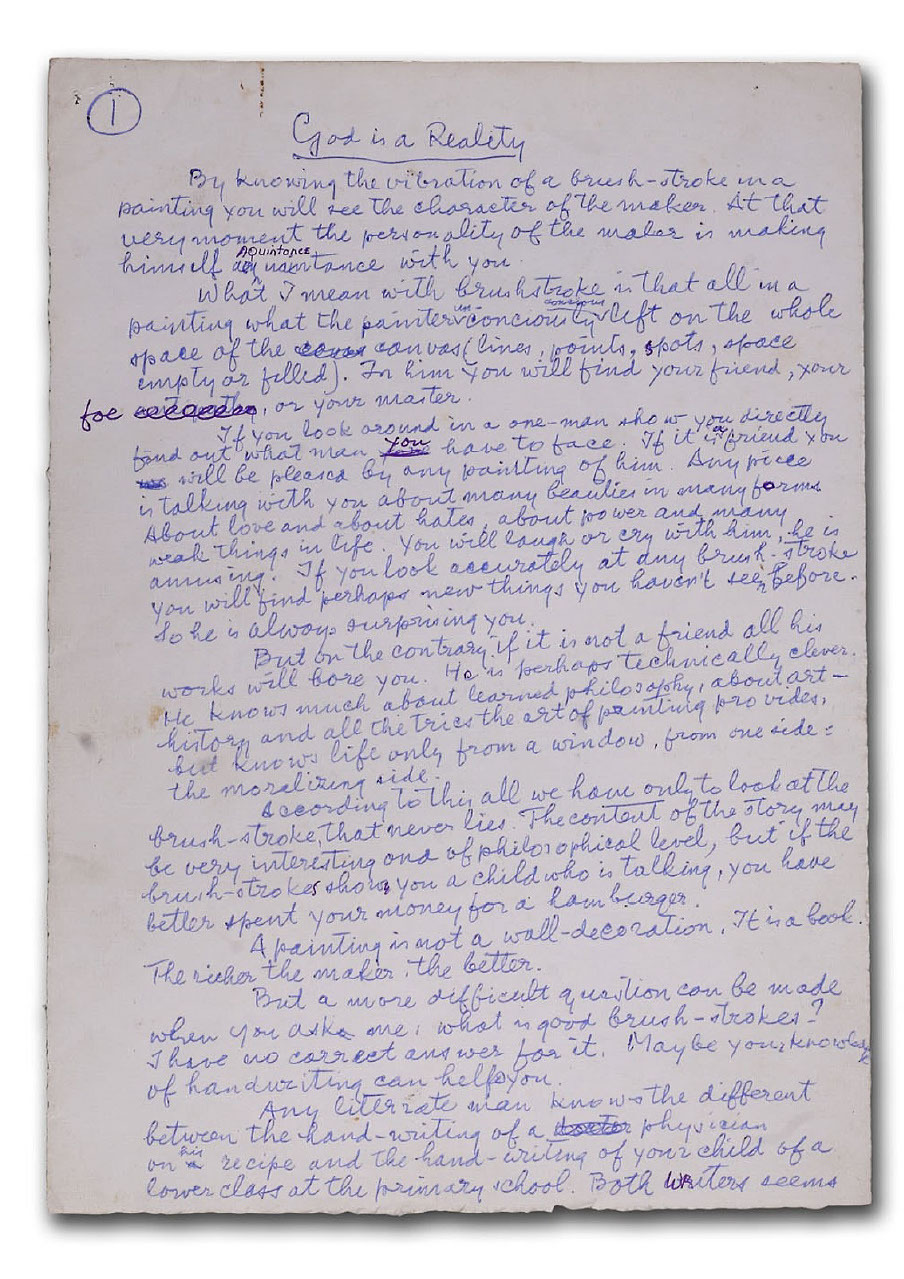 1
God is a Reality
By knowing the vibration of a brush-stroke in a
painting you will see the character of the maker. At that
very moment the personality of the maker is making
himself aquintance with you.
What I mean with brushstroke is that all in a
painting what the painter unconciously left on the whole
space of the canvas (lines, points, spots, space
empty or filled). In him you will find your friend, your
foe, or your master.
If you look around in a one-man show you directly
find out what man you have to face. If it is a friend you
will be pleased by any painting of him. Any piece
is talking with you about many beauties in many forms
About love and about hates, about power and many
weak things in life. You will laugh or cry with him, he is
amusing. If you look accurately at any brush-stroke
you will find perhaps new things you haven't seen before.
So he is always surprising you.
But on the contrary if it is not a friend all his
works will bore you. He is perhaps technically clever.
He knows much about learned philosophy, about art-
history and all the trics the art of painting provides,
but knows life only from a window, from one side:
the moralizing side.
According to this all we have only to look at the
brush-stroke, that never lies. The content of the story may
be very interesting and of philosophical level, but if the
brush-strokes shows you a child who is talking, you have
better spent your money for a hamburger.
A painting is not a wall-decoration. It is a book.
The richer the maker the better.
But a more difficult question can be made
when you ask me: what is good brush-strokes?
I have no correct answer for it. Maybe your knowledge
of handwriting can help you.
Any litterate man knows the different
between the hand-writing of a physician
on his recipe and the hand-writing of your child of a
lower class at the primary school. Both writers seems